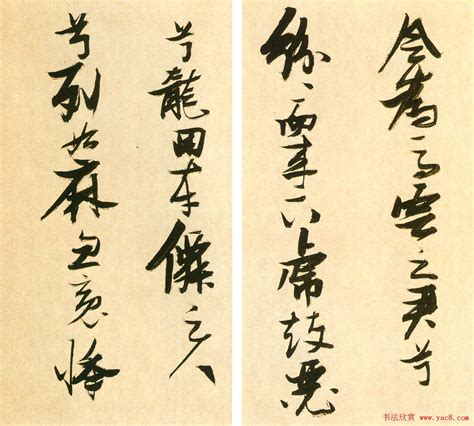 為馬雲之君兮
紛〻而來下虎鼓瑟
兮回車僊之人
兮列如麻忽魂悸
书法欣赏 www.yac8.com